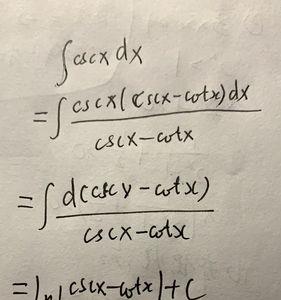 ∫cscx dx
=∫ cscx(cscx-cotx)dx / cscx-cotx
=∫ d(cscx-cotx) / cscx-cotx
=ln|cscx-cotx|+C